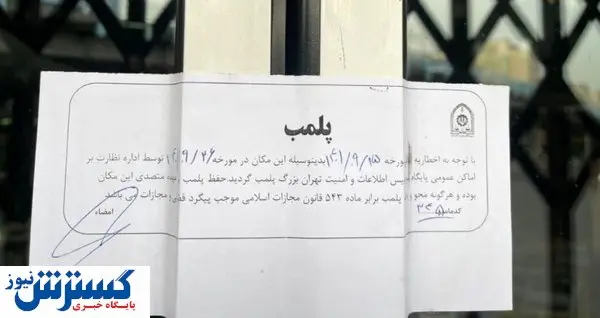 پلمب
با توجه به اخطاریه مورخه ۱۴۰۱/۹/۱۵ بدینوسیله این مکان در مورخه ۱۴۰۱/۹/۲۶ توسط اداره نظارت بر
اماکن عمومی پایگاه پلیس اطلاعات و امنیت تهران بزرگ پلمب گردید. حفظ پلمب متصدی این مکان
بوده و هرگونه پلمب برابر ماده ۵۴۳ قانون مجازات اسلامی موجب پیگرد مجازات می باشد.
امضاء
گسترش نیوز
پایگاه خبری